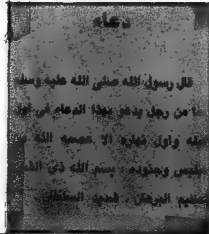 دعاء
قال رسول الله صلى الله عليه وسلم
ما من رجل يدعو بهذا الدعاء في
وأول نهاره الا عصمه الله
وجنوده . بسم الله ذي
عظيم البرهان . شديد السلطان